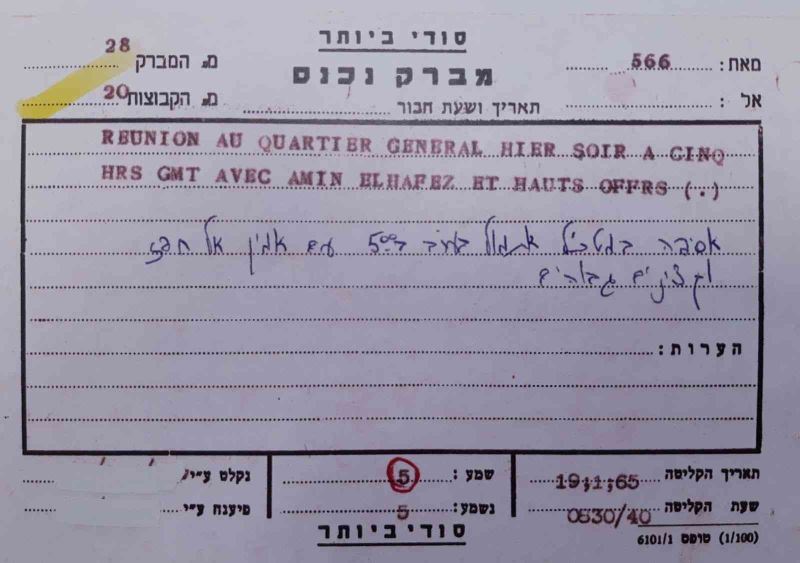 סודי ביותר
מס' המברק 28
מברק נכנס
מאת: 566
מס' הקבוצות 20
תאריך ושעת חבור
אל:
REUNION AU QUARTIER GENERAL HIER SOIR A CINQ
HRS GMT AVEC AMIN ELHAFEZ ET HAUTS OFFRS (.)
אסיפה במטכ"ל אתמול בערב ב־5⁰⁰ עם אמין אל חפז
וקצינים גבוהים
הערות:
תאריך הקליטה 19;1;65
שעת הקליטה 0630/40
(1/100) טופס 6101/1
שמע: 5
נשמע: 5
נקלט ע"י
פיענח ע"י
סודי ביותר